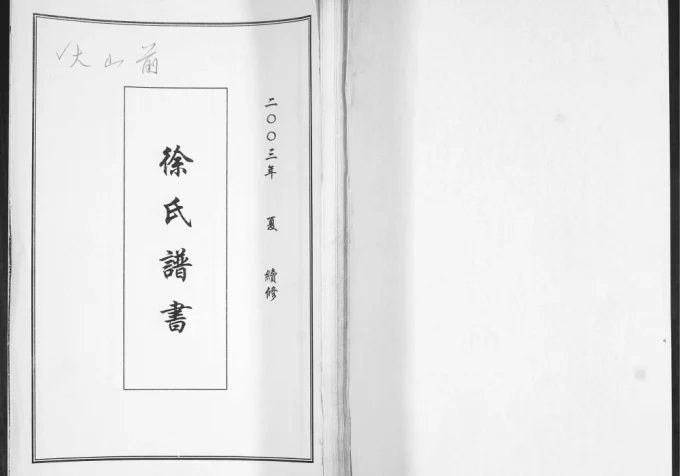 二〇〇三年 夏 續修
徐氏譜書
山前